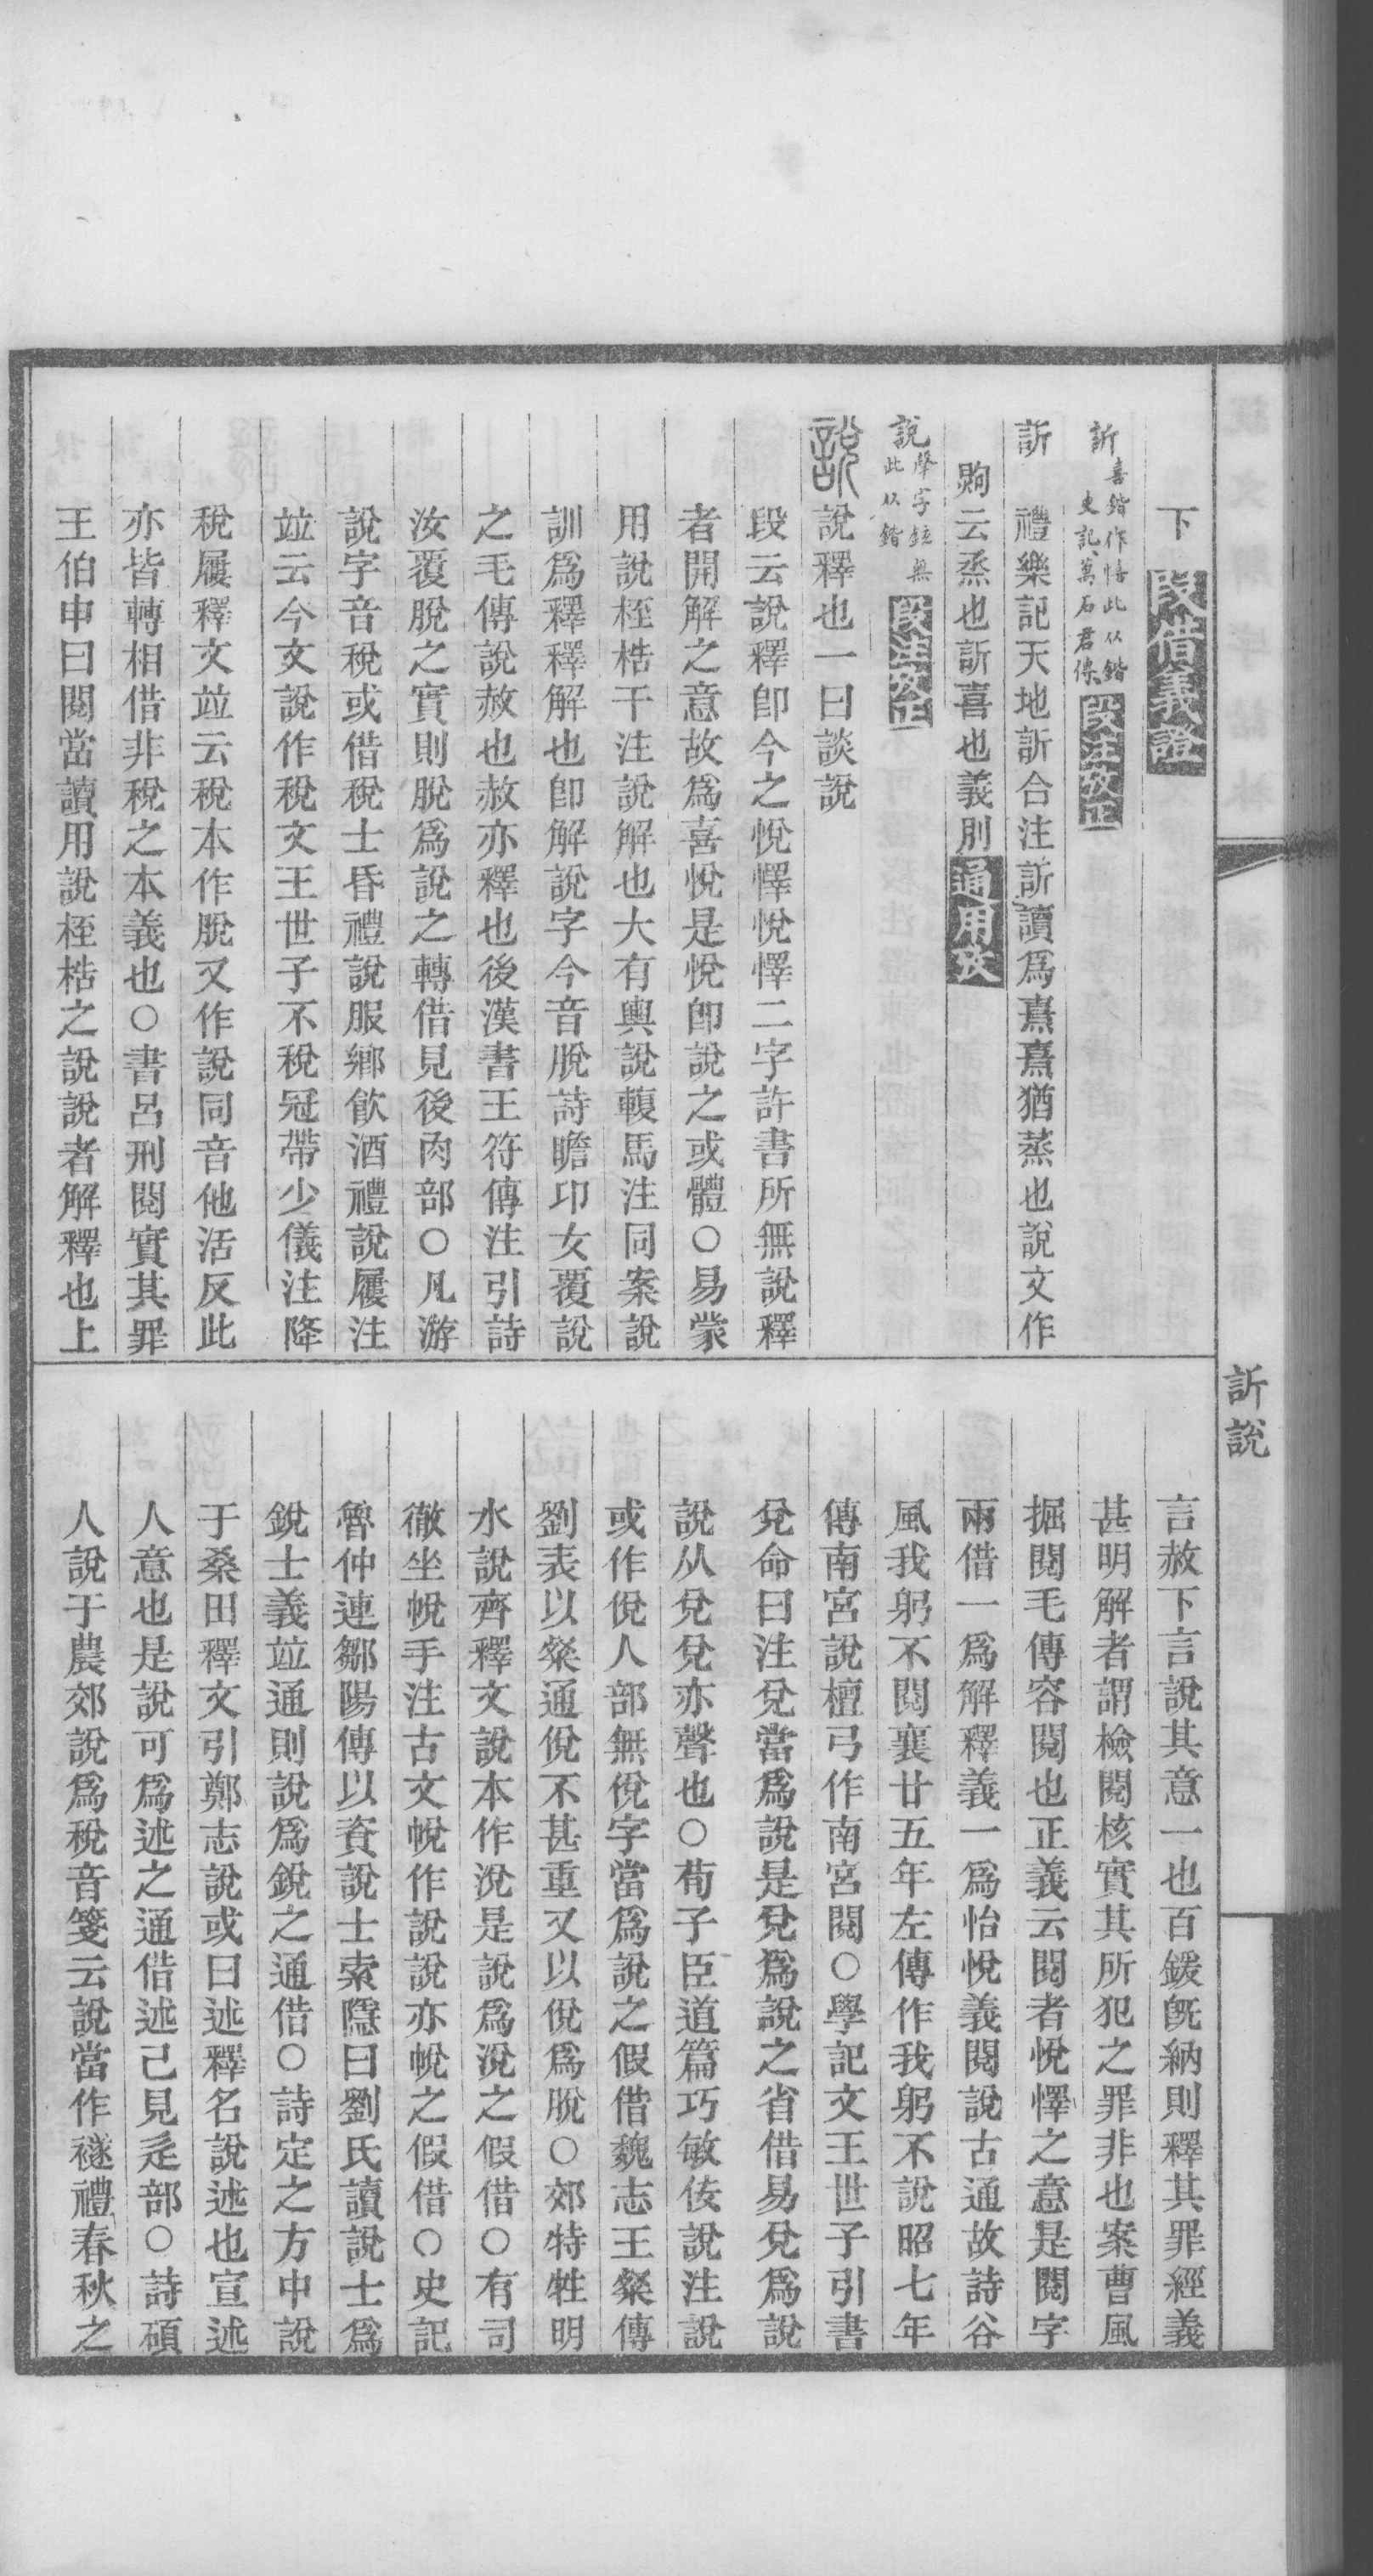 下 叚借義證
訢 喜鍇作悟此从鍇
史記萬石君傳 段注攷正
訢 禮樂記天地訢合注訢讀爲熹熹猶蒸也說文作
云烝也訢喜也義別 通用攷
說 聲字鉉無
此从鍇 段注攷正
說 說釋也一曰談說
段云說釋卽今之悅懌悅懌二字許書所無說釋
者開解之意故爲喜悅是悅卽說之或體○易蒙
用說桎梏干注說解也大有輿說輹馬注同案說
訓爲釋釋解也卽解說字今音脫詩瞻卬女覆說
之毛傳說赦也赦亦釋也後漢書王符傳注引詩
汝覆脫之實則脫爲說之轉借見後肉部○凡游
說字音稅或借稅士昏禮說服鄉飮酒禮說屨注
竝云今文說作稅文王世子不稅冠帶少儀注降
稅屨釋文竝云稅本作脫又作說同音他活反此
亦皆轉相借非稅之本義也○書呂刑閱實其罪
王伯申曰閱當讀用說桎梏之說說者解釋也上
訢說
言赦下言說其意一也百鍰旣納則釋其罪經義
甚明解者謂檢閱核實其所犯之罪非也案曹風
掘閱毛傳容閱也正義云閱者悅懌之意是閱字
兩借一爲解釋義一爲怡悅義閱說古通故詩谷
風我躬不閱襄廿五年左傳作我躬不說昭七年
傳南宮說檀弓作南宮閱○學記文王世子引書
兌命曰注兌當爲說是兌爲說之省借易兌爲說
說从兌兌亦聲也○荀子臣道篇巧敏佞說注說
或作侻人部無侻字當爲說之假借魏志王粲傳
劉表以粲通侻不甚重又以侻爲脫○郊特牲明
水說齊釋文說本作涚是說爲涚之假借○有司
徹坐帨手注古文帨作說說亦帨之假借○史記
魯仲連鄒陽傳以資說士索隱曰劉氏讀說士爲
銳士義竝通則說爲銳之通借○詩定之方中說
于桑田釋文引鄭志說或曰述釋名說述也宣述
人意也是說可爲述之通借述已見辵部○詩碩
人說于農郊說爲稅音箋云說當作襚禮春秋之